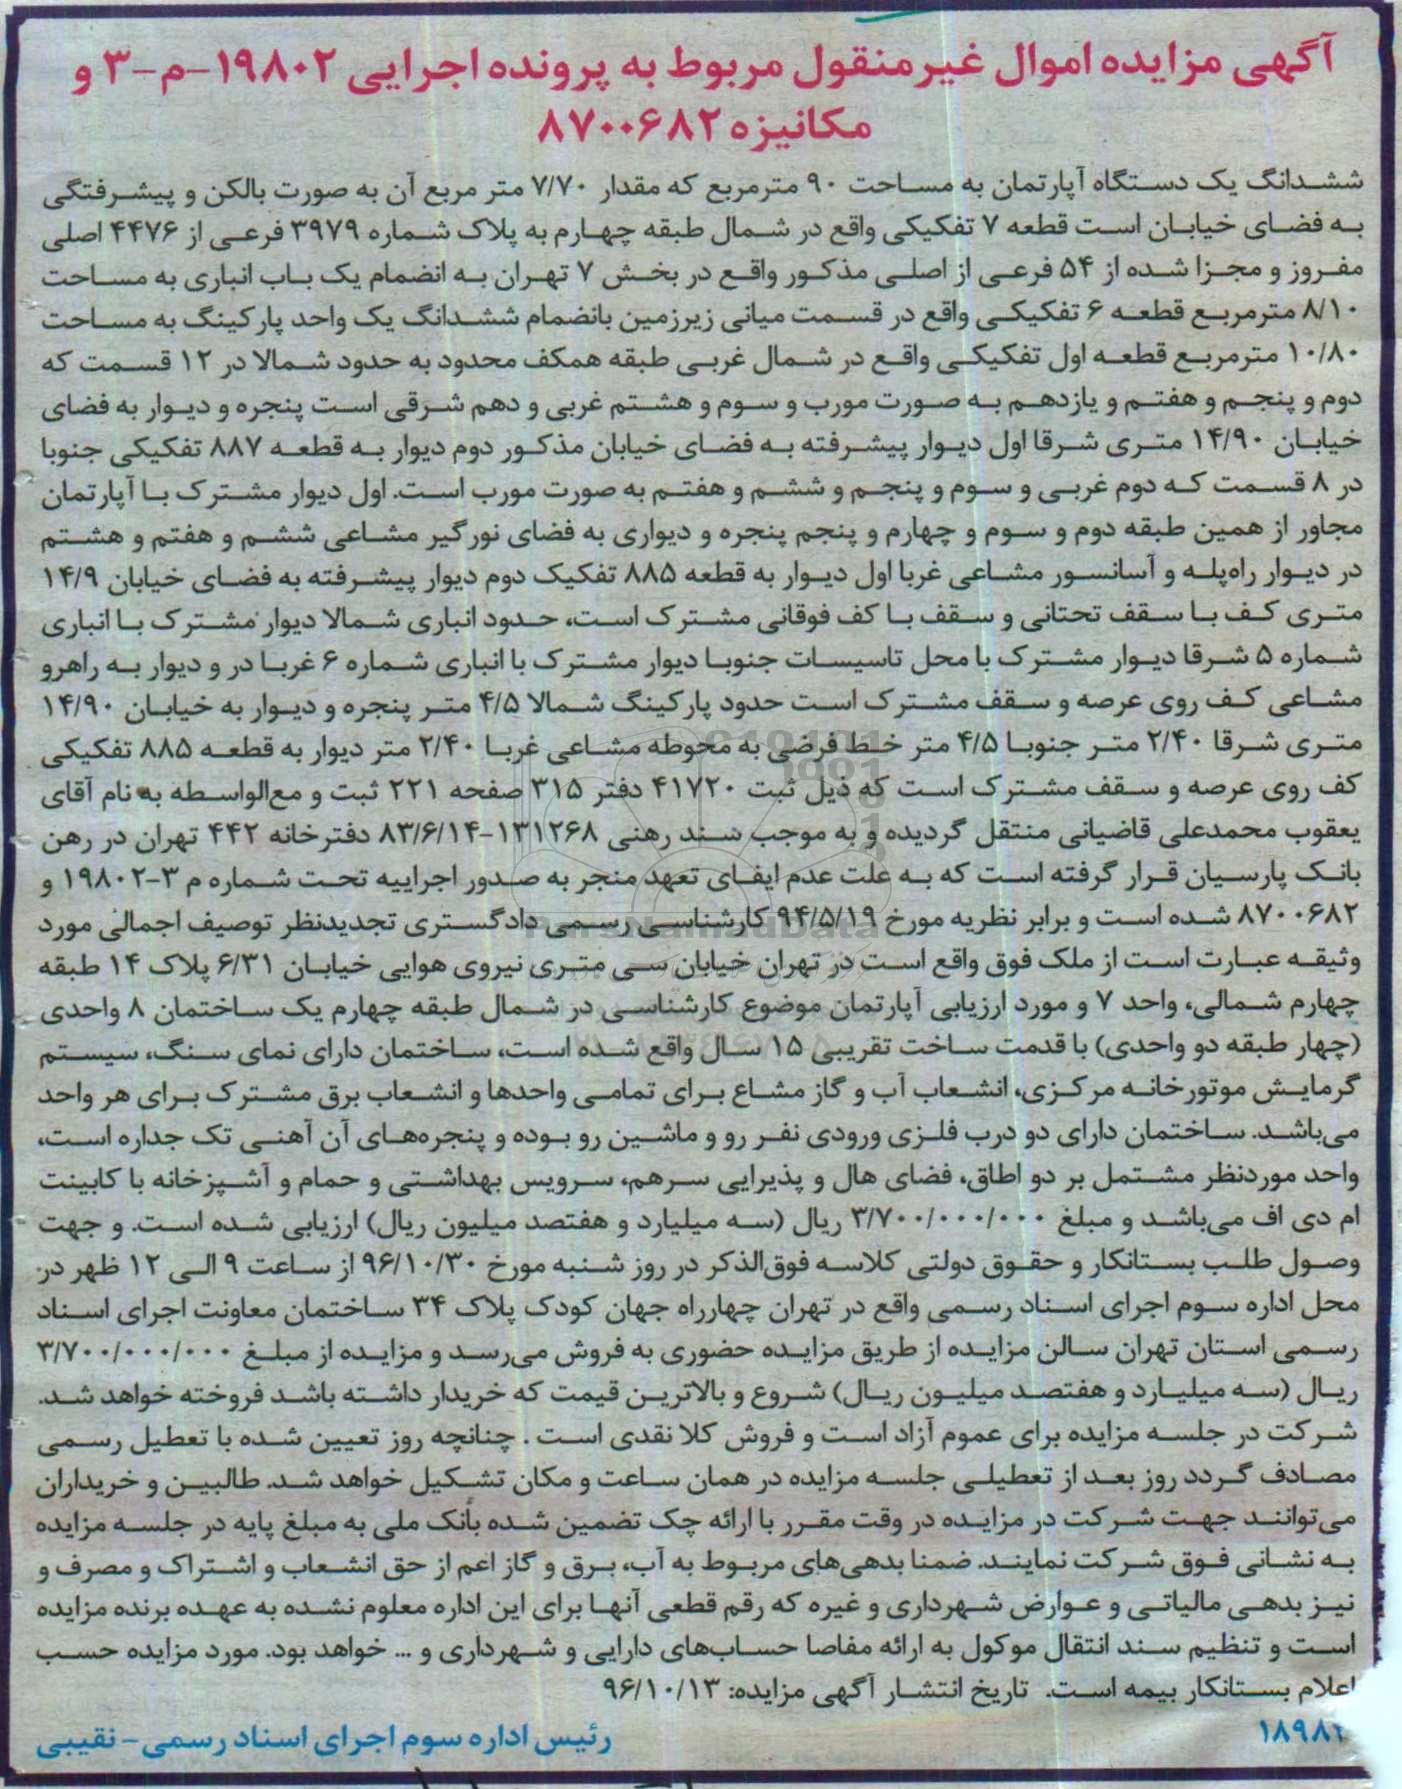 آگهی مزایده اموال غیرمنقول مربوط به پرونده اجرایی ۱۹۸۰۲-م-۳ و
مکانیزه ۸۷۰۰۶۸۲
ششدانگ یک دستگاه آپارتمان به مساحت ۹۰ مترمربع که مقدار ۷/۷۰ متر مربع آن به صورت بالکن و پیشرفتگی
به فضای خیابان است قطعه ۷ تفکیکی واقع در شمال طبقه چهارم به پلاک شماره ۳۹۷۹ فرعی از ۴۴۷۶ اصلی
مفروز و مجزا شده از ۵۴ فرعی از اصلی مذکور واقع در بخش ۷ تهران به انضمام یک باب انباری به مساحت
۸/۱۰ مترمربع قطعه ۶ تفکیکی واقع در قسمت میانی زیرزمین بانضمام ششدانگ یک واحد پارکینگ به مساحت
۱۰/۸۰ مترمربع قطعه اول تفکیکی واقع در شمال غربی طبقه همکف محدود به حدود شمالا در ۱۲ قسمت که
دوم و پنجم و هفتم و یازدهم به صورت مورب و سوم و هشتم غربی و دهم شرقی است پنجره و دیوار به فضای
خیابان ۱۴/۹۰ متری شرقا اول دیوار پیشرفته به فضای خیابان مذکور دوم دیوار به قطعه ۸۸۷ تفکیکی جنوبا
در ۸ قسمت که دوم غربی و سوم و پنجم و ششم و هفتم به صورت مورب است. اول دیوار مشترک با آپارتمان
مجاور از همین طبقه دوم و سوم و چهارم و پنجم پنجره و دیواری به فضای نورگیر مشاعی ششم و هفتم و هشتم
در دیوار راه‌پله و آسانسور مشاعی غربا اول دیوار به قطعه ۸۸۵ تفکیک دوم دیوار پیشرفته به فضای خیابان ۱۴/۹
متری کف با سقف تحتانی و سقف با کف فوقانی مشترک است، حدود انباری شمالا دیوار مشترک با انباری
شماره ۵ شرقا دیوار مشترک با محل تاسیسات جنوبا دیوار مشترک با انباری شماره ۶ غربا در و دیوار به راهرو
مشاعی کف روی عرصه و سقف مشترک است حدود پارکینگ شمالا ۴/۵ متر پنجره و دیوار به خیابان ۱۴/۹۰
متری شرقا ۲/۴۰ متر جنوبا ۴/۵ متر خط فرضی به محوطه مشاعی غربا ۲/۴۰ متر دیوار به قطعه ۸۸۵ تفکیکی
کف روی عرصه و سقف مشترک است که ذیل ثبت ۴۱۷۲۰ دفتر ۳۱۵ صفحه ۲۲۱ ثبت و مع‌الواسطه به نام آقای
یعقوب محمدعلی قاضیانی منتقل گردیده و به موجب سند رهنی ۱۳۱۲۶۸-۸۳/۶/۱۴ دفترخانه ۴۴۲ تهران در رهن
بانک پارسیان قرار گرفته است که به علت عدم ایفای تعهد منجر به صدور اجراییه تحت شماره م ۳-۱۹۸۰۲ و
۸۷۰۰۶۸۲ شده است و برابر نظریه مورخ ۹۴/۵/۱۹ کارشناسی رسمی دادگستری تجدیدنظر توصیف اجمالی مورد
وثیقه عبارت است از ملک فوق واقع است در تهران خیابان سی متری نیروی هوایی خیابان ۶/۳۱ پلاک ۱۴ طبقه
چهارم شمالی، واحد ۷ و مورد ارزیابی آپارتمان موضوع کارشناسی در شمال طبقه چهارم یک ساختمان ۸ واحدی
(چهار طبقه دو واحدی) با قدمت ساخت تقریبی ۱۵ سال واقع شده است، ساختمان دارای نمای سنگ، سیستم
گرمایش موتورخانه مرکزی، انشعاب آب و گاز مشاع برای تمامی واحدها و انشعاب برق مشترک برای هر واحد
می‌باشد. ساختمان دارای دو درب فلزی ورودی نفر رو و ماشین رو بوده و پنجره‌های آن آهنی تک جداره است،
واحد موردنظر مشتمل بر دو اطاق، فضای هال و پذیرایی سرهم، سرویس بهداشتی و حمام و آشپزخانه با کابینت
ام دی اف می‌باشد و مبلغ ۳/۷۰۰/۰۰۰/۰۰۰ ریال (سه میلیارد و هفتصد میلیون ریال) ارزیابی شده است. و جهت
وصول طلب بستانکار و حقوق دولتی کلاسه فوق‌الذکر در روز شنبه مورخ ۹۶/۱۰/۳۰ از ساعت ۹ الی ۱۲ ظهر در
محل اداره سوم اجرای اسناد رسمی واقع در تهران چهارراه جهان کودک پلاک ۳۴ ساختمان معاونت اجرای اسناد
رسمی استان تهران سالن مزایده از طریق مزایده حضوری به فروش می‌رسد و مزایده از مبلغ ۳/۷۰۰/۰۰۰/۰۰۰
ریال (سه میلیارد و هفتصد میلیون ریال) شروع و بالاترین قیمت که خریدار داشته باشد فروخته خواهد شد.
شرکت در جلسه مزایده برای عموم آزاد است و فروش کلا نقدی است . چنانچه روز تعیین شده با تعطیل رسمی
مصادف گردد روز بعد از تعطیلی جلسه مزایده در همان ساعت و مکان تشکیل خواهد شد. طالبین و خریداران
می‌توانند جهت شرکت در مزایده در وقت مقرر با ارائه چک تضمین شده بانک ملی به مبلغ پایه در جلسه مزایده
به نشانی فوق شرکت نمایند. ضمنا بدهی‌های مربوط به آب، برق و گاز اعم از حق انشعاب و اشتراک و مصرف و
نیز بدهی مالیاتی و عوارض شهرداری و غیره که رقم قطعی آنها برای این اداره معلوم نشده به عهده برنده مزایده
است و تنظیم سند انتقال موکول به ارائه مفاصا حساب‌های دارایی و شهرداری و ... خواهد بود. مورد مزایده حسب
اعلام بستانکار بیمه است. تاریخ انتشار آگهی مزایده: ۹۶/۱۰/۱۳
رئیس اداره سوم اجرای اسناد رسمی - نقیبی
ParsNamadData